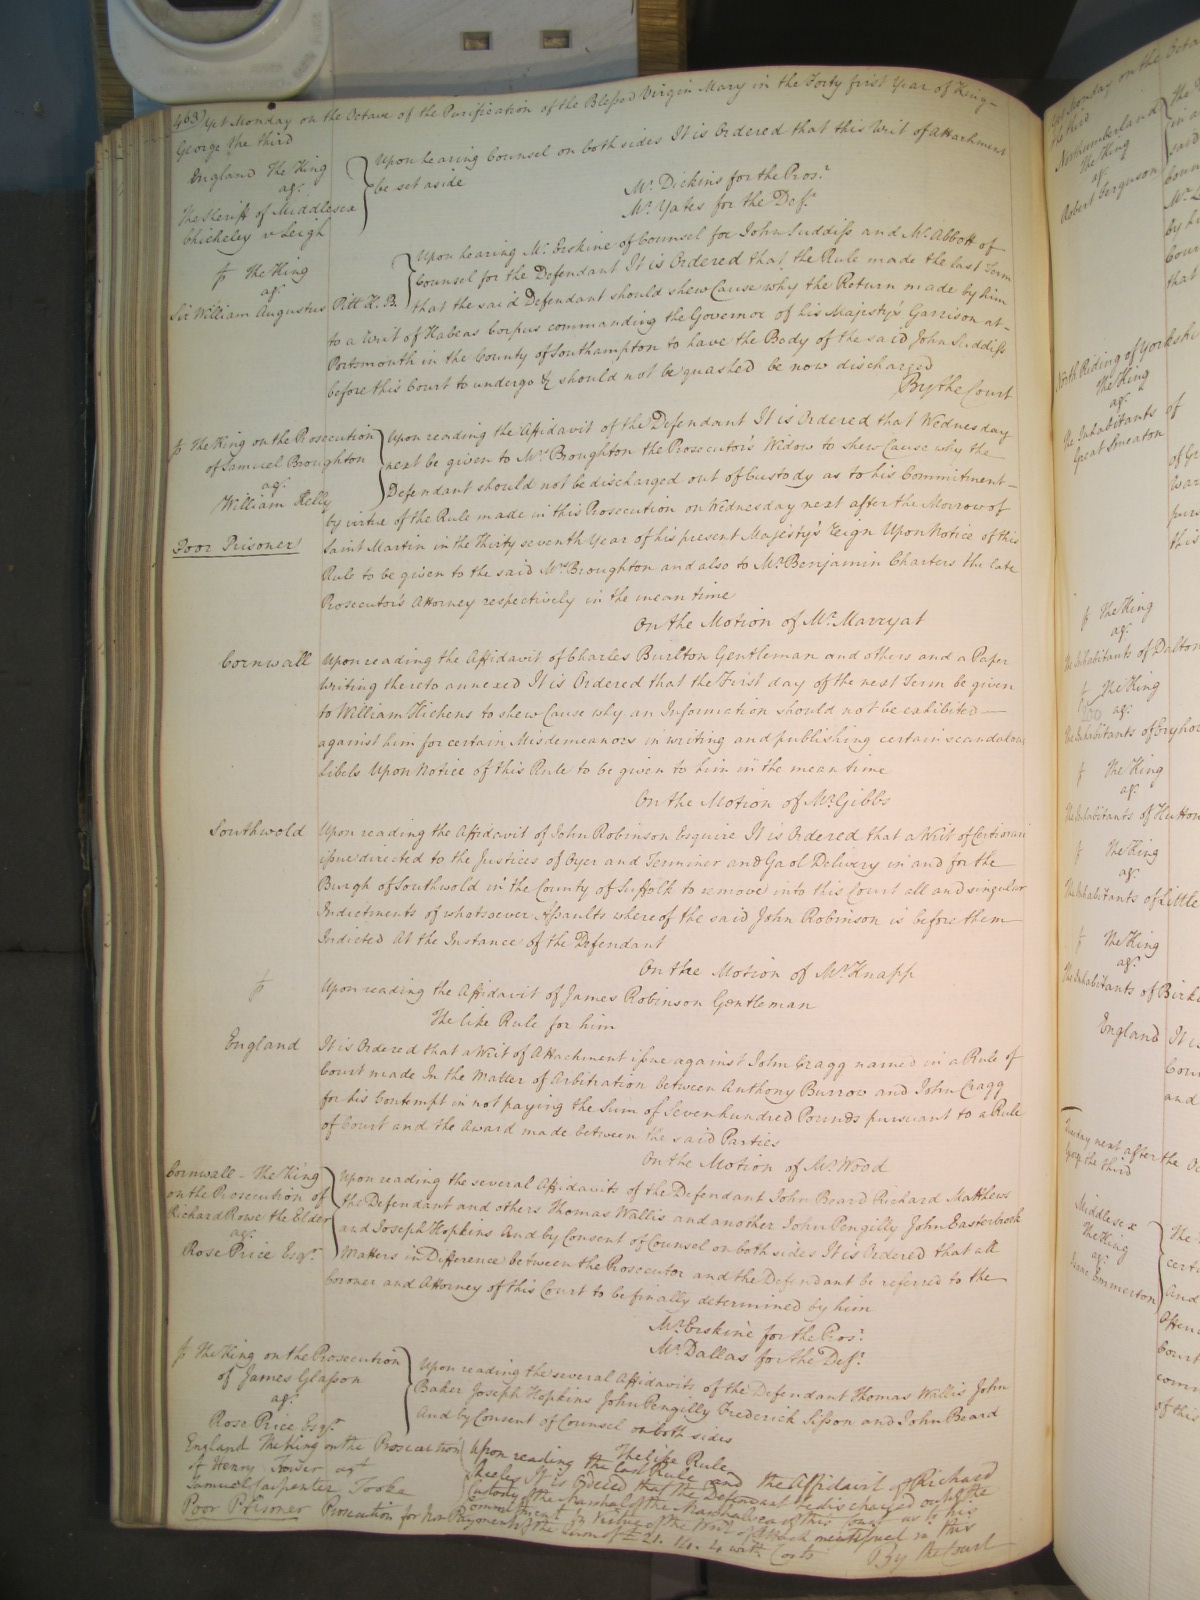 463 Yet Monday on the Octave of the Purification of the Blessed Virgin Mary in the Forty first Year of King
George the third
England The King
agt
The Sheriff of Middlesex
Chicheley v Leigh
Upon hearing Counsel on both sides It is Ordered that this Writ of Attachment
be set aside
Mr Dickins for the Prosr
Mr Yates for the Deft
The King
agt
Sir William Augustus Pitt K.B.
Upon hearing Mr Erskine of Counsel for John Suddiss and Mr Abbott of
Counsel for the Defendant It is Ordered that the Rule made the last Term
that the said Defendant should shew Cause why the Return made by him
to a Writ of Habeas Corpus commanding the Governor of his Majesty's Garrison at
Portsmouth in the County of Southampton to have the Body of the said John Suddiss
before this Court to undergo &c should not be quashed be now discharged
By the Court
The King on the Prosecution
of Samuel Broughton
agt
William Kelly
Poor Prisoner
Upon reading the Affidavit of the Defendant It is Ordered that Wednesday
next be given to Mrs Broughton the Prosecutor's Widow to shew Cause why the
Defendant should not be discharged out of Custody as to his Commitment
by virtue of the Rule made in this Prosecution on Wednesday next after the Morrow of
Saint Martin in the Thirty seventh Year of his present Majesty's Reign Upon Notice of this
Rule to be given to the said Mrs Broughton and also to Mr Benjamin Charters the late
Prosecutor's Attorney respectively in the mean time
On the Motion of Mr Marryat
Cornwall Upon reading the Affidavit of Charles Burlton Gentleman and others and a Paper
Writing thereto annexed It is Ordered that the First day of the next Term be given
to William Hichens to shew Cause why an Information should not be exhibited
against him for certain Misdemeanors in writing and publishing certain scandalous
Libels Upon Notice of this Rule to be given to him in the mean time
On the Motion of Mr Gibbs
Southwold Upon reading the Affidavit of John Robinson Esquire It is Ordered that a Writ of Certiorari
issue directed to the Justices of Oyer and Terminer and Gaol Delivery in and for the
Burgh of Southwold in the County of Suffolk to remove into this Court all and singular
Indictments of whatsoever Assaults whereof the said John Robinson is before them
Indicted At the Instance of the Defendant
On the Motion of Mr Knapp
Upon reading the Affidavit of James Robinson Gentleman
The like Rule for him
England It is Ordered that a Writ of Attachment issue against John Cragg named in a Rule of
Court made In the Matter of Arbitration between Anthony Burrow and John Cragg
for his Contempt in not paying the Sum of Seven hundred Pounds pursuant to a Rule
of Court and the Award made between the said Parties
On the Motion of Mr Wood
Cornwall - The King
on the Prosecution of
Richard Rowe the Elder
agt
Rose Price Esqr
Upon reading the several Affidavits of the Defendant John Beard Richard Matthews
the Defendant and others Thomas Wallis and another John Pengilly John Easterbrook
and Joseph Hopkins And by Consent of Counsel on both sides It is Ordered that all
Matters in Difference between the Prosecutor and the Defendant be referred to the
Coroner and Attorney of this Court to be finally determined by him
Mr Erskine for the Prosr
Mr Dallas for the Deft
The King on the Prosecution
of James Glasson
agt
Rose Price Esqr
Upon reading the several Affidavits of the Defendant Thomas Willis John
Baker Joseph Hopkins John Pengilly Frederick Sisson and John Beard
And by Consent of Counsel on both sides
The like Rule
England The King on the Prosecution
of Henry agt
Samuel Carpenter Tooke
Poor Prisoner
Upon reading the last Rule and the Affidavit of Richard
It is Ordered that the Defendant be discharged out of the
Custody of the Marshal of the Marshalsea of this Court as to his
Commitment in Virtue of the Writ of Attach mentioned in this
Prosecution for Non Payment of the Sum of £21. 14. 4 with Costs
By the Court
the third
Northumberland
The King
agt
Robert Ferguson
North Riding of Yorkshi
The King
agt
The Inhabitants of
Great Smeaton
The King
agt
The Inhabitants of Dalton
The King
agt
The King
agt
The Inhabitants of Hutton
The King
agt
The Inhabitants of Little
The King
agt
The Inhabitants of Birk
England It is
Tuesday next after the Oc
George the third
Middlesex
The King
agt
Isaac Emmerton